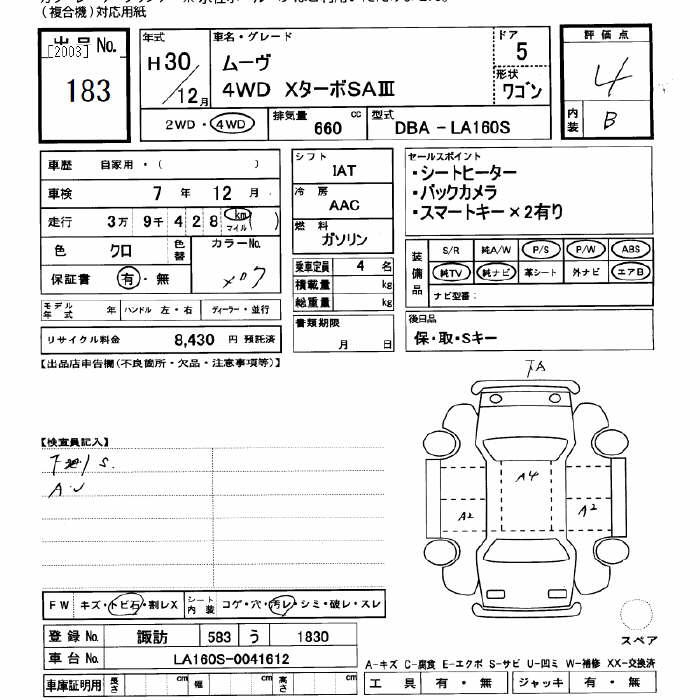 (複合機)対応用紙
出品No.
[2003]
183
年式
H30/12月
車名・グレード
ムーヴ
4WD XターボSAⅢ
ドア
5
形状
ワゴン
評価点
4
内装
B
2WD・4WD
排気量
660
cc
型式
DBA - LA160S
車歴 自家用・( )
車検 7年 12月
走行 3万 9千 4 2 8 km
マイル ( )
色 クロ
色替
カラーNo.
X07
保証書 有・無
モデル年式 年
ハンドル 左・右
ディーラー・並行
リサイクル料金 8,430 円 預託済
シフト
IAT
冷房
AAC
燃料
ガソリン
乗車定員 4 名
積載量 kg
総重量 kg
書類期限
月 日
セールスポイント
・シートヒーター
・バックカメラ
・スマートキー×2有り
装備品
S/R 純A/W P/S P/W ABS
純TV 純ナビ 革シート 外ナビ エアB
ナビ型番:
後日品
保・取・Sキー
【出品店申告欄(不良箇所・欠品・注意事項等)】
【検査員記入】
A・U
A
A4
A2
A2
スペア
FW キズ・トビ石・割レX
シート内装 コゲ・穴・汚レ・シミ・破レ・スレ
登録No. 諏訪 583 う 1830
車台No. LA160S-0041612
車庫証明用 長さ cm 幅 cm 高さ cm
A-キズ C-腐食 E-エクボ S-サビ U-凹ミ W-補修 XX-交換済
工具 有・無 ジャッキ 有・無